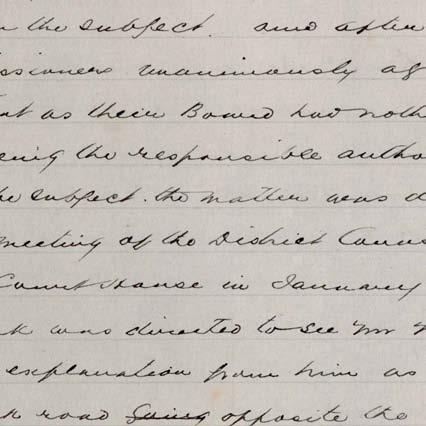 n the subject. and after
issioners unanimously ag
at as their Board had noth
eing the responsible autho
he subject. the matter was d
meeting of the District Counc
Court House in January
rk was directed to see Mr
explanation from him as
k road opposite the